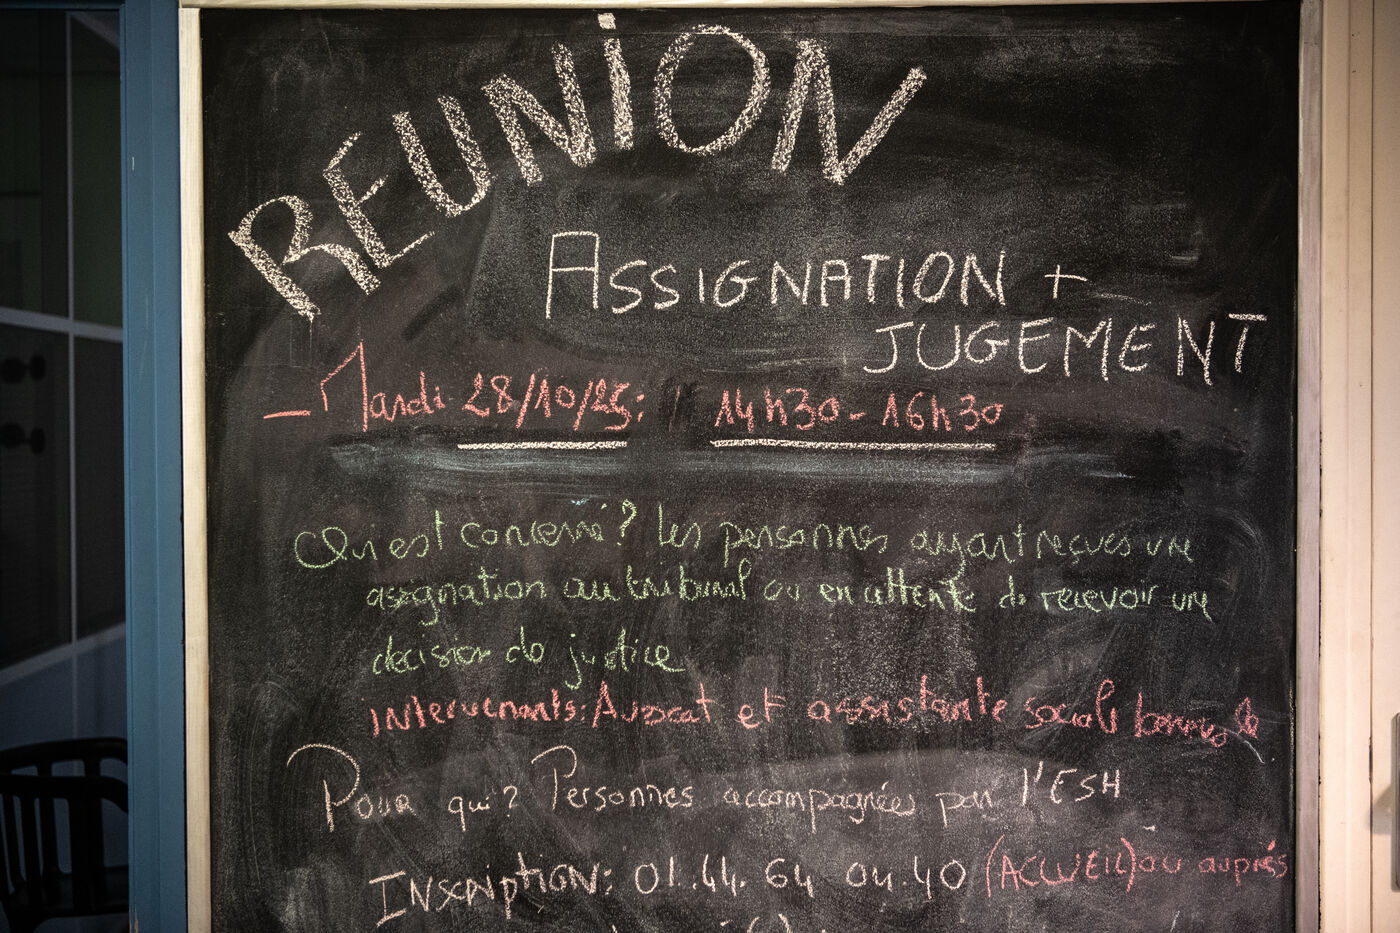 REUNION
ASSIGNATION +
JUGEMENT
- Mardi 28/10/25: 14h30 - 16h30
Qui est concerné? les personnes ayant reçues une
assignation au tribunal ou en attente de recevoir une
décision de justice
intervenants: Avocat et assistante sociale
Pour qui? Personnes accompagnées par l'ESH
INSCRIPTION: 01.44.64 04.40 (ACCUEIL) ou auprès